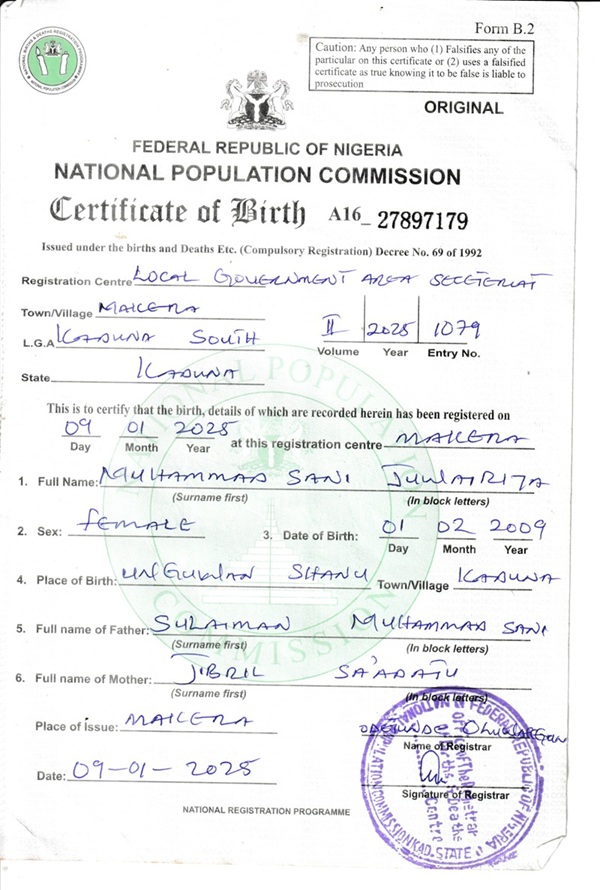 Form B.2
Caution: Any person who (1) Falsifies any of the
particular on this certificate or (2) uses a falsified
certificate as true knowing it to be false is liable to
prosecution
ORIGINAL
FEDERAL REPUBLIC OF NIGERIA
NATIONAL POPULATION COMMISSION
Certificate of Birth A16_ 27897179
Issued under the births and Deaths Etc. (Compulsory Registration) Decree No. 69 of 1992
Registration Centre LOCAL GOVERNMENT AREA
Town/Village MAKERA
L.G.A KADUNA SOUTH II 2025 1079
Volume Year Entry No.
State KADUNA
This is to certify that the birth, details of which are recorded herein has been registered on
09 01 2025 at this registration centre MAKERA
Day Month Year
1. Full Name: MUHAMMAD SANI JUWAIRIYA
(Surname first) (In block letters)
2. Sex: female 3. Date of Birth: 01 02 2009
Day Month Year
4. Place of Birth: UNGUWAN SHANU Town/Village KADUNA
5. Full name of Father: SULAIMAN MUHAMMAD SANI
(Surname first) (In block letters)
6. Full name of Mother: JIBRIL SA'ADATU
(Surname first) (In block letters)
Place of issue: MAKERA
Name of Registrar
Date: 09-01-2025
Signature of Registrar
NATIONAL REGISTRATION PROGRAMME
NATIONAL POPULATION COMMISSION